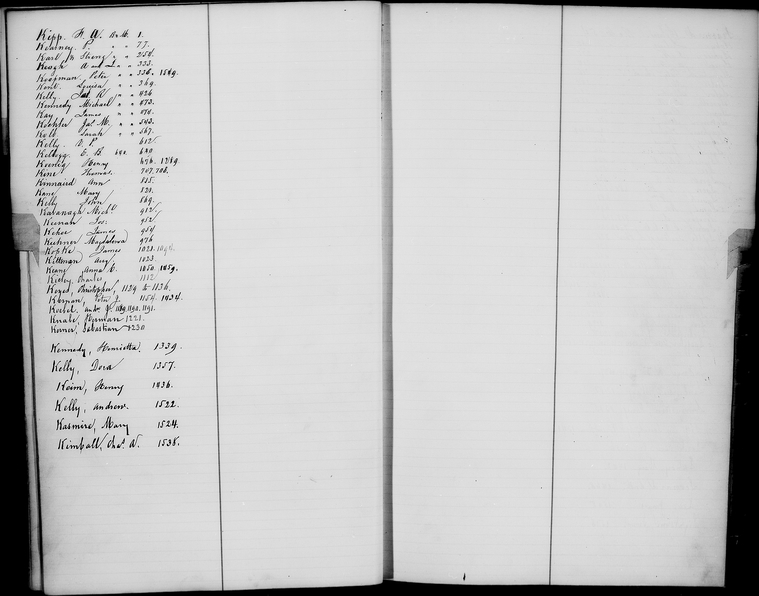 Kipp. F. A. 1.
Kearney P. " " 77.
Karl " " 254.
Keogh " " 333.
Koopman Peter " " 336. 1569.
Kent Louisa " " 369.
Kelly " " 426
Kennedy Michael " "
Kay James " "
Jas. M. " " 543.
Kolb Sarah " " 567.
Kelly. P. 612.
Kellogg E. B. 620
Koenig Henry 676. 1289.
Kane Thomas. 707, 708.
Kinnaird Ann 815.
Kane Mary 821.
Kelly John 869.
Kavanagh Michl 912.
Keenan Jos. 952
Kehoe James 954
Kuhner Magdalena 976
James 1021.
Kettman Aug 1023
Keane Anna C. 1050. 1059.
Charles 1112
Christopher, 1129 to 1136.
Kernan, Peter J. 1154. 1434.
Koebel 1189, 1190, 1191.
Knabe, Herman 1221.
Kerner, Sebastian 1230
Kennedy, Henrietta. 1339.
Kelly, Dora 1357.
Keim, Henry 1436.
Kelly, Andrew. 1522.
Kasmire, Mary 1524.
Kimball, Chas. W. 1538.